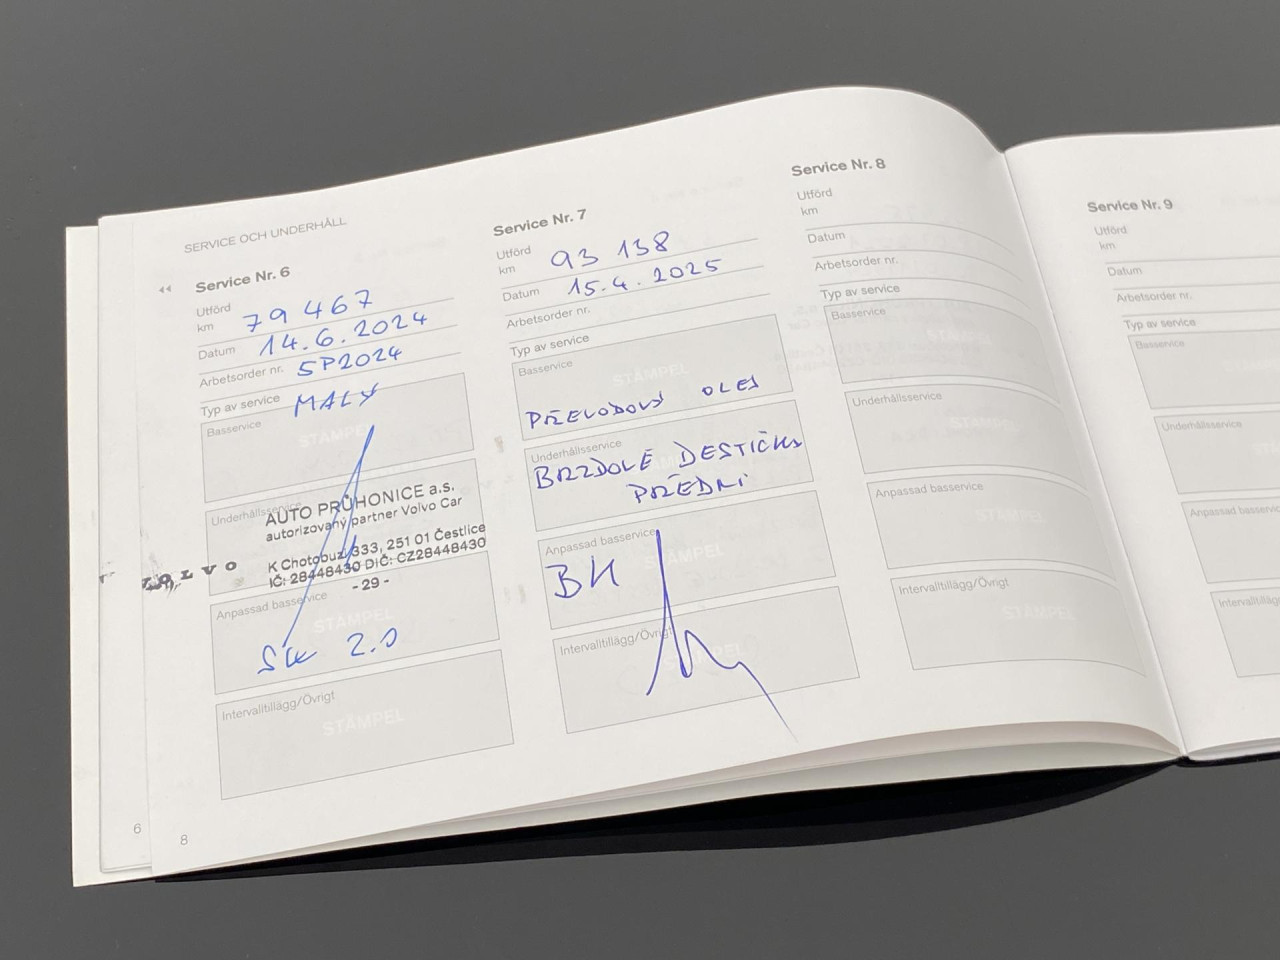 SERVICE OCH UNDERHÅLL
Service Nr. 6
Utförd
km 79 467
Datum 14.6.2024
Arbetsorder nr. SP2024
Typ av service MALÝ
Basservice
STÄMPEL
Underhållsservice
AUTO PRŮHONICE a.s.
autorizovaný partner Volvo Car
VOLVO
K Chotobuzi 333, 251 01 Čestlice
IČ: 28448430 DIČ: CZ28448430
- 29 -
Anpassad basservice
STÄMPEL
2.0
Intervalltillägg/Övrigt
STÄMPEL
6
8
Service Nr. 7
Utförd
km 93 138
Datum 15.4.2025
Arbetsorder nr.
Typ av service
Basservice
STÄMPEL
PŘEVODOVÝ OLEJ
Underhållsservice
BRZDOVÉ DESTIČKY
PŘEDNÍ
Anpassad basservice
STÄMPEL
BK
Intervalltillägg/Övrigt
STÄMPEL
Service Nr. 8
Utförd
km
Datum
Arbetsorder nr.
Typ av service
Basservice
STÄMPEL
Underhållsservice
STÄMPEL
Anpassad basservice
STÄMPEL
Intervalltillägg/Övrigt
STÄMPEL
Service Nr. 9
Utförd
km
Datum
Arbetsorder nr.
Typ av service
Basservice
Underhållsservice
Anpassad basservice
Intervalltillägg